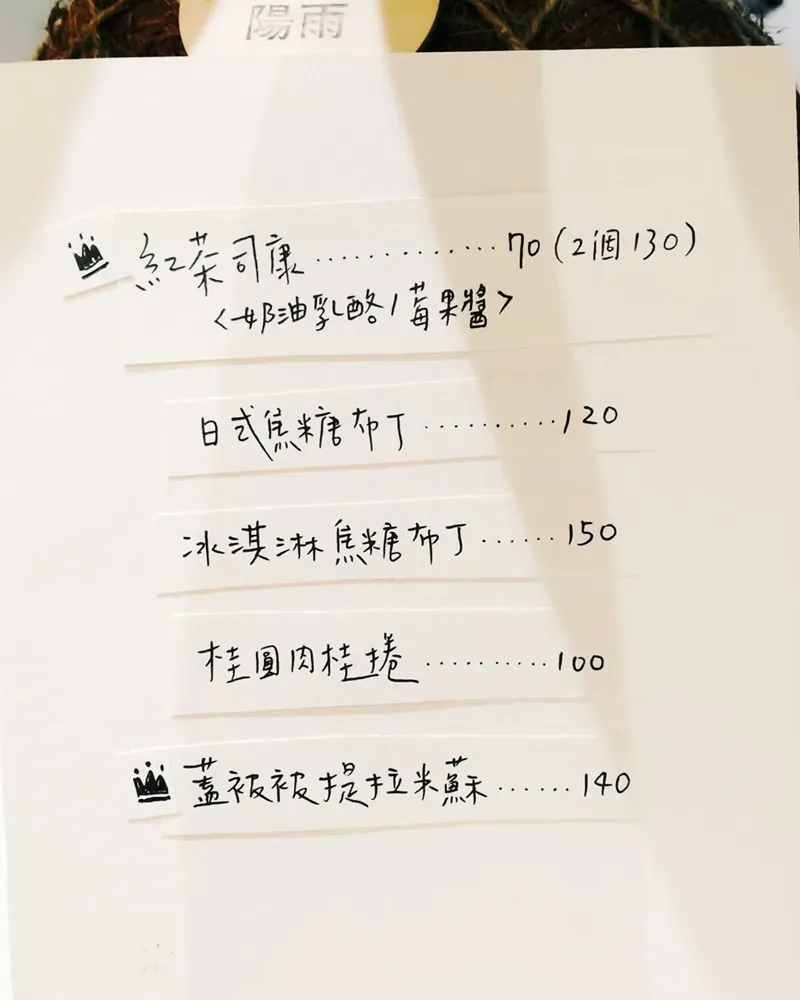 陽雨
紅茶司康..............70(2個130)
<奶油乳酪/莓果醬>
日式焦糖布丁..........120
冰淇淋焦糖布丁......150
桂圓肉桂捲..........100
蓋被被提拉米蘇......140